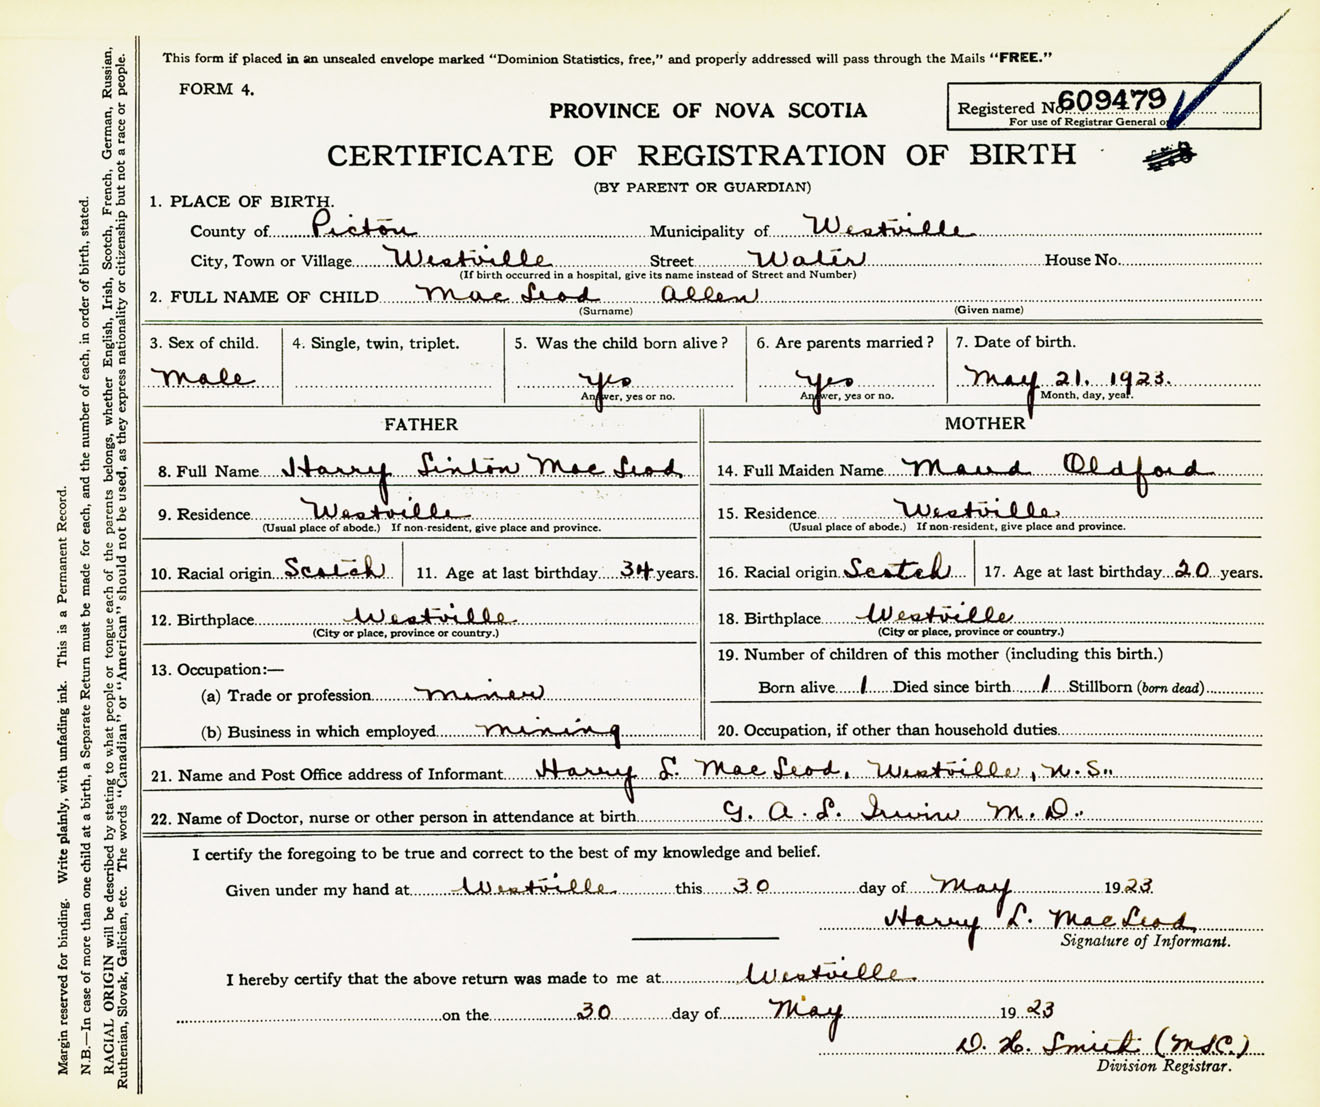 This form if placed in an unsealed envelope marked "Dominion Statistics, free," and properly addressed will pass through the Mails "FREE."
FORM 4.
Registered No. 609479
For use of Registrar General
PROVINCE OF NOVA SCOTIA
CERTIFICATE OF REGISTRATION OF BIRTH
(BY PARENT OR GUARDIAN)
1. PLACE OF BIRTH.
County of Pictou Municipality of Westville
City, Town or Village Westville Street Water House No.
(If birth occurred in a hospital, give its name instead of Street and Number)
2. FULL NAME OF CHILD MacLeod Allen
(Surname) (Given name)
3. Sex of child. 4. Single, twin, triplet. 5. Was the child born alive? 6. Are parents married? 7. Date of birth.
Male yes yes May 21. 1923.
Answer, yes or no. Answer, yes or no. Month, day, year.
FATHER MOTHER
8. Full Name Harry Linton MacLeod 14. Full Maiden Name Maud Oldford
9. Residence Westville 15. Residence Westville
(Usual place of abode.) If non-resident, give place and province. (Usual place of abode.) If non-resident, give place and province.
10. Racial origin Scotch 11. Age at last birthday 34 years. 16. Racial origin Scotch 17. Age at last birthday 20 years.
12. Birthplace Westville 18. Birthplace Westville
(City or place, province or country.) (City or place, province or country.)
13. Occupation:— 19. Number of children of this mother (including this birth.)
(a) Trade or profession miner Born alive 1 Died since birth 1 Stillborn (born dead)
(b) Business in which employed mining 20. Occupation, if other than household duties
21. Name and Post Office address of Informant Harry L. MacLeod, Westville, N.S.
22. Name of Doctor, nurse or other person in attendance at birth G. A. L. Irwin M.D.
I certify the foregoing to be true and correct to the best of my knowledge and belief.
Given under my hand at Westville this 30 day of May 1923.
Harry L. MacLeod
Signature of Informant.
I hereby certify that the above return was made to me at Westville
on the 30 day of May 1923
D. H. Smith (M.S.C.)
Division Registrar.
Margin reserved for binding. Write plainly, with unfading ink. This is a Permanent Record.
N.B.—In case of more than one child at a birth, a Separate Return must be made for each, and the number of each, in order of birth, stated.
RACIAL ORIGIN will be described by stating to what people or tongue each of the parents belongs, whether English, Irish, Scotch, French, German, Russian,
Ruthenian, Slovak, Galician, etc. The words "Canadian" or "American" should not be used, as they express nationality or citizenship but not a race or people.